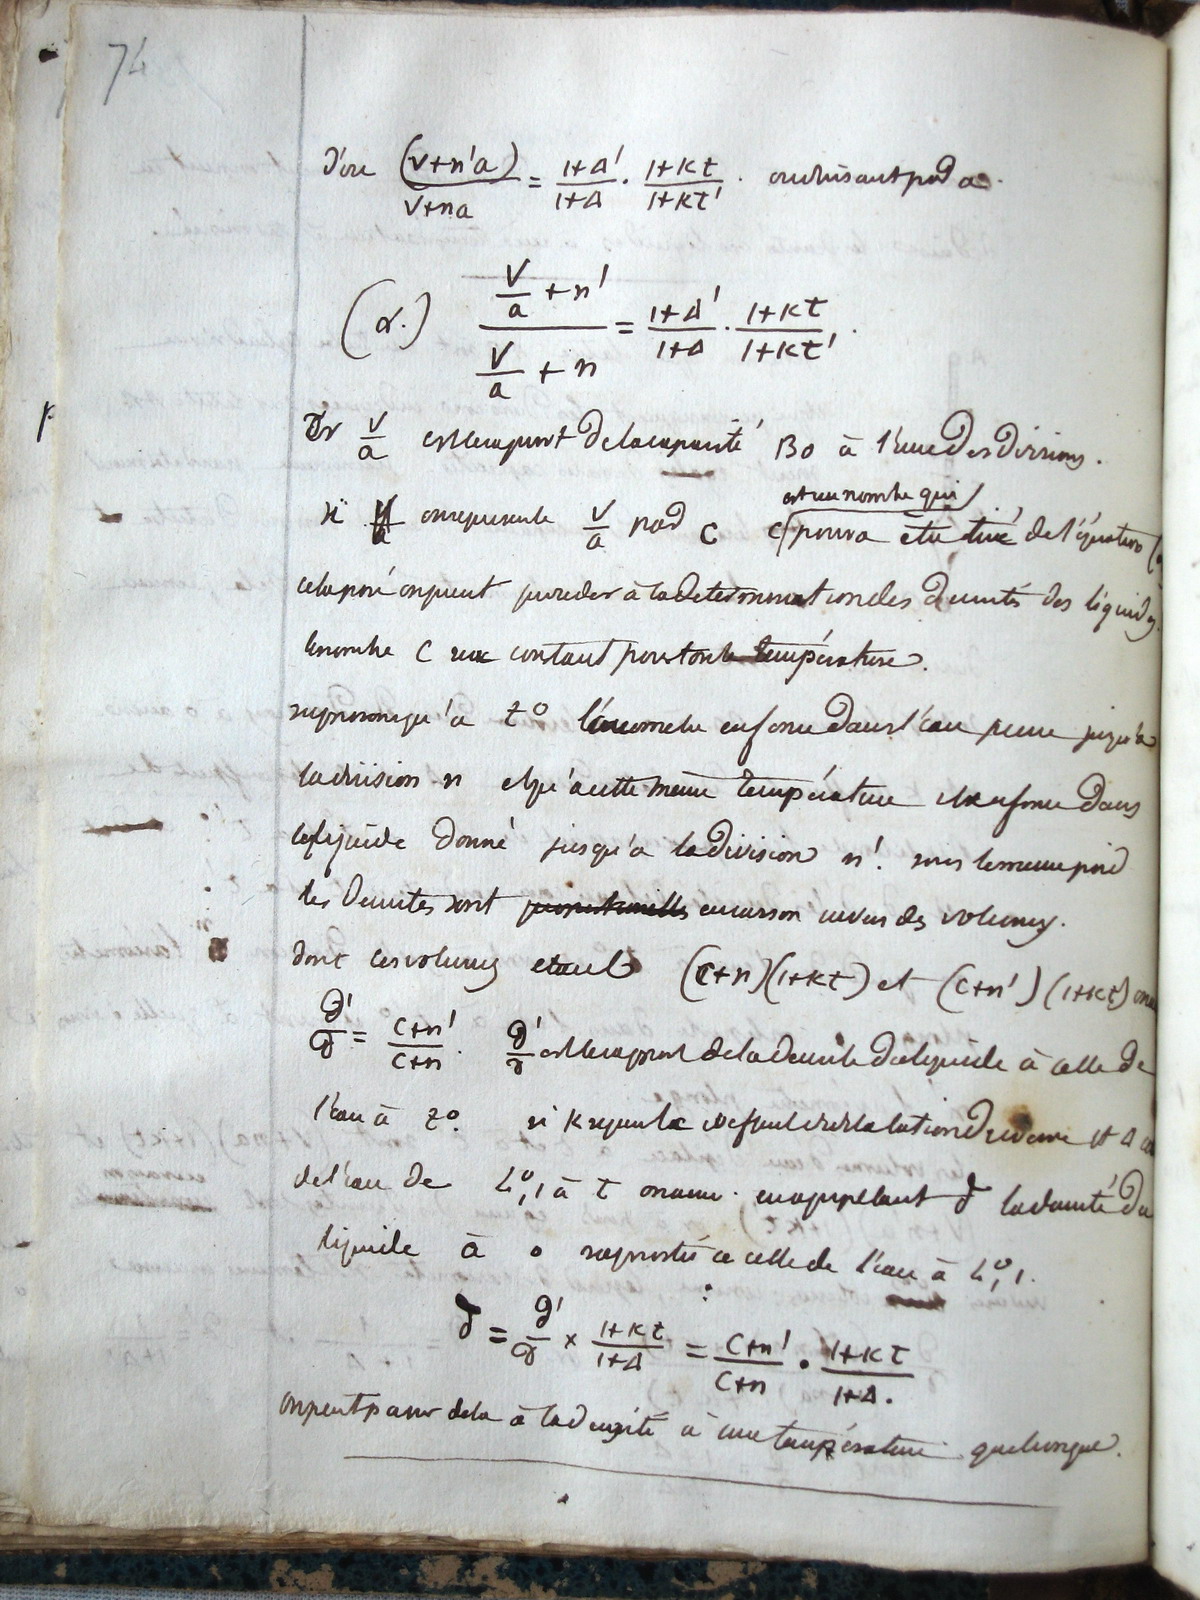 74
d'où (v+n'a)/(v+na) = (1+Δ')/(1+Δ) . (1+Kt)/(1+Kt') . en divisant par a.
(α.) (V/a + n')/(V/a + n) = (1+Δ')/(1+Δ) . (1+Kt)/(1+Kt') .
Or V/a est le rapport de la capacité BO à l'une des divisions.
est un nombre qui
si on represente V/a par C C pourra être tiré de l'équation (
cela posé on peut proceder à la determination des densités des liquides.
le nombre C sera constant pour toute température.
supposons qu'à t° l'areometre enfonce dans l'eau pure jusqu'à
la division n et qu'à cette meme température il enfonce dans
le liquide donné jusqu'à la division n'. sous le meme poid
les densites sont proportionnelles en raison inverse des volumes.
dont ces volumes etant (C+n)(1+Kt) et (C+n')(1+Kt) on a
∂'/∂ = (C+n')/(C+n) . ∂'/∂ est le rapport de la densite du liquide à celle de
l'eau à t°. si K represente la dilatation du verre et Δ
de l'eau de 4°,1 à t on aura en appelant δ la densité du
liquide à 0 rapportée a celle de l'eau à 4°,1.
δ = ∂'/∂ × (1+Kt)/(1+Δ) = (C+n')/(C+n) . (1+Kt)/(1+Δ.)
on peut passer de la à la densité à une température quelconque.